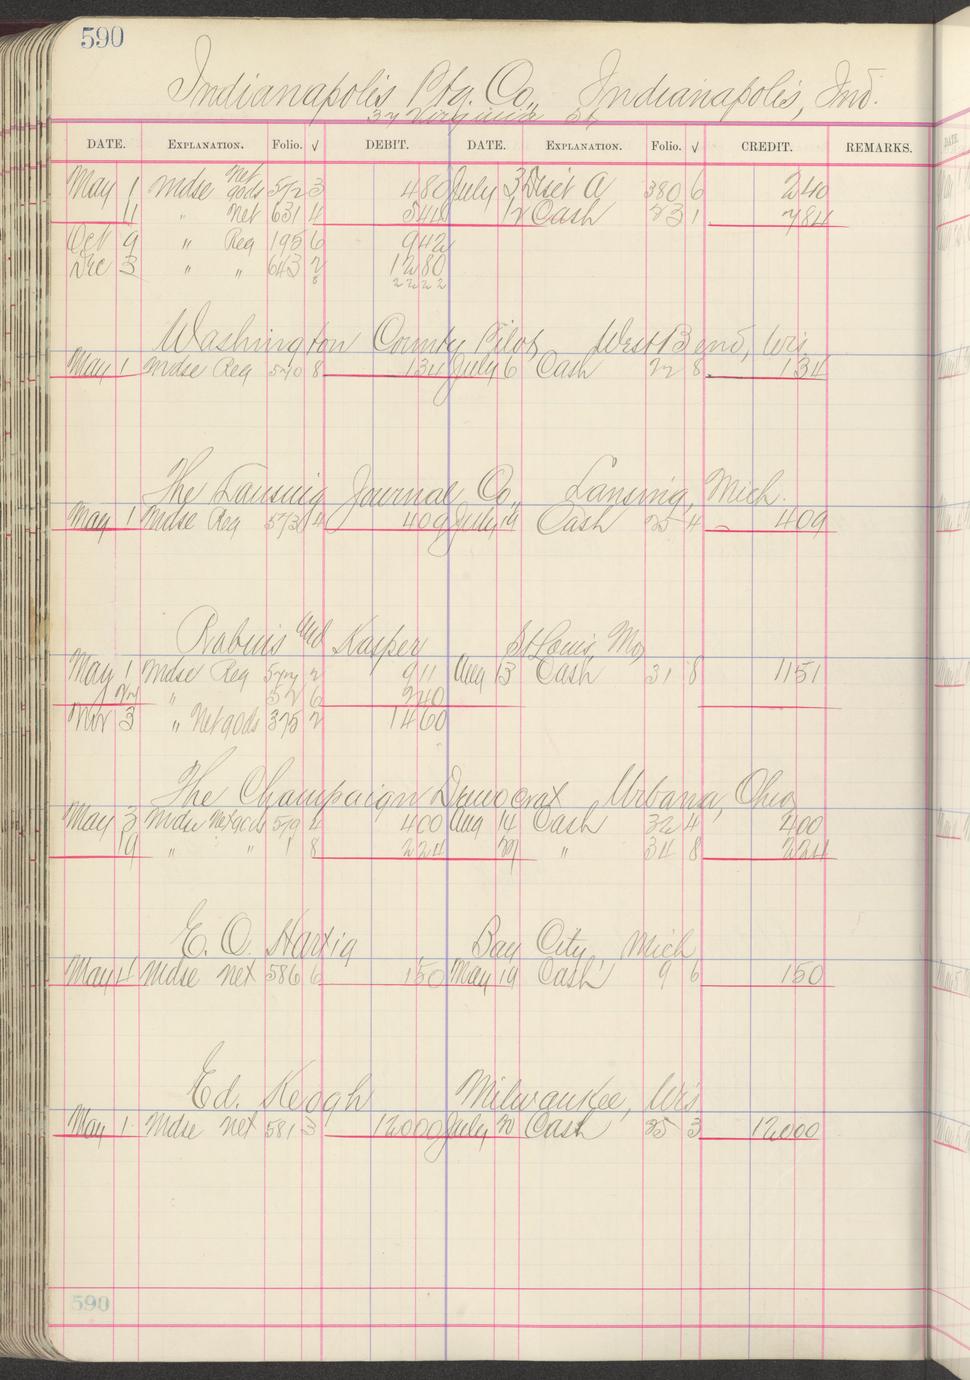 590
Indianapolis Ptg. Co., Indianapolis, Ind.
37 Virginia St
DATE. EXPLANATION. Folio. √ DEBIT. DATE. EXPLANATION. Folio. √ CREDIT. REMARKS.
May 1 Mdse Net gods 572 3 480 July 3 Disct A 380 6 240
11 " Net 631 4 544 12 Cash 231 784
Oct 9 " Reg 195 6 942
Dec 3 " " 643 2 1280
8 2222
Washington County Pilot, West Bend, Wis
May 1 Mdse Reg 570 8 134 July 6 Cash 22 8 134
The Lansing Journal Co., Lansing, Mich.
May 1 Mdse Reg 573 4 409 July 19 Cash 25 4 409
Rabuis and Kasper St Louis, Mo
May 1 Mdse Reg 577 2 911 Aug 13 Cash 31 8 1151
" 52 6 240
Nov 3 " Net gods 375 2 1460
The Champaign Democrat Urbana, Ohio
May 3 Mdse Net gods 579 4 400 Aug 14 Cash 32 4 400
19 " " 1 8 224 29 " 34 8 224
E. O. Hartig Bay City, Mich
May 4 Mdse Net 586 6 150 May 19 Cash 9 6 150
Ed. Keogh Milwaukee, Wis
May 1 Mdse Net 581 3 12000 July 20 Cash 25 3 12000
590